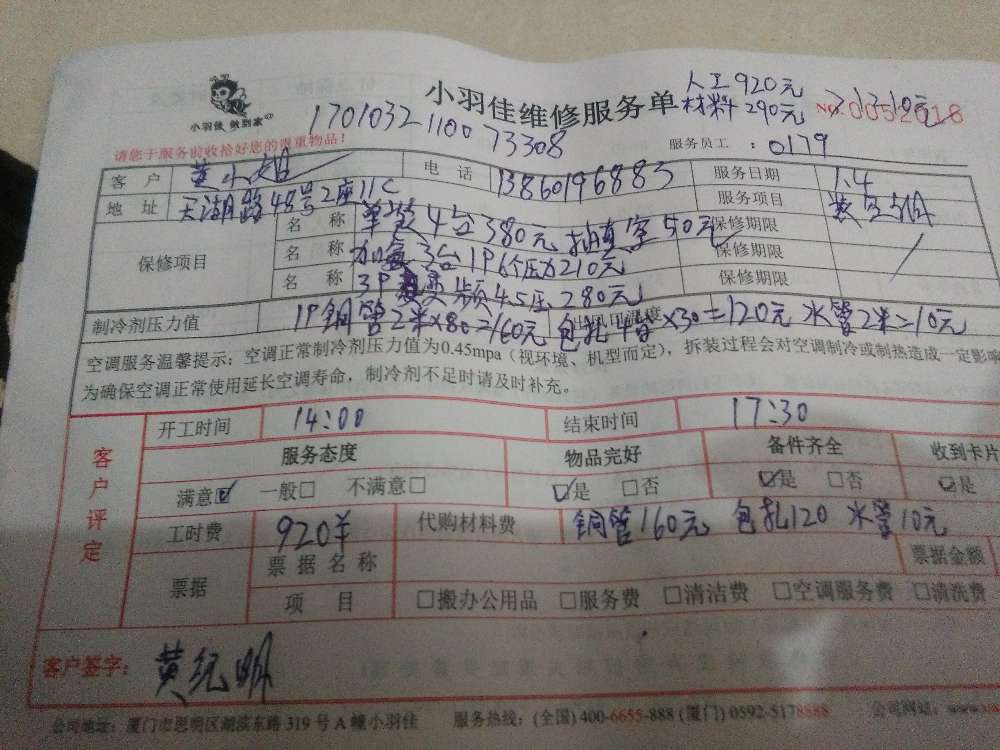 人工920元
小羽佳维修服务单 材料290元
小羽佳 做到家
1701032110073308
请您于服务前收拾好您的贵重物品！ 服务员工：0179
客户 黄小姐 电话 13860196883 服务日期 1.4
地址 天湖路48号2座11C 服务项目
保修项目 名称 单装4台380元 抽真空50元 保修期限
名称 加氟3台1P6个压力210元 保修期限
名称 3P变频4.5压280元 保修期限
制冷剂压力值 1P铜管2米×80=160元 包扎4管×30=120元 水管2米=10元
空调服务温馨提示：空调正常制冷剂压力值为0.45mpa（视环境、机型而定），拆装过程会对空调制冷或制热造成一定影响
为确保空调正常使用延长空调寿命，制冷剂不足时请及时补充。
客户评定 开工时间 14:00 结束时间 17:30
服务态度 物品完好 备件齐全 收到卡片
满意☑ 一般□ 不满意□ ☑是 □否 ☑是 □否 ☑是
工时费 920 代购材料费 铜管160元 包扎120 水管10元
票据 票据名称 票据金额
项目 □搬办公用品 □服务费 □清洁费 □空调服务费 □清洗费
客户签字：
公司地址：厦门市思明区湖滨东路319号A幢小羽佳 服务热线：(全国) 400-6655-888 (厦门) 0592-5178888 公司网站：